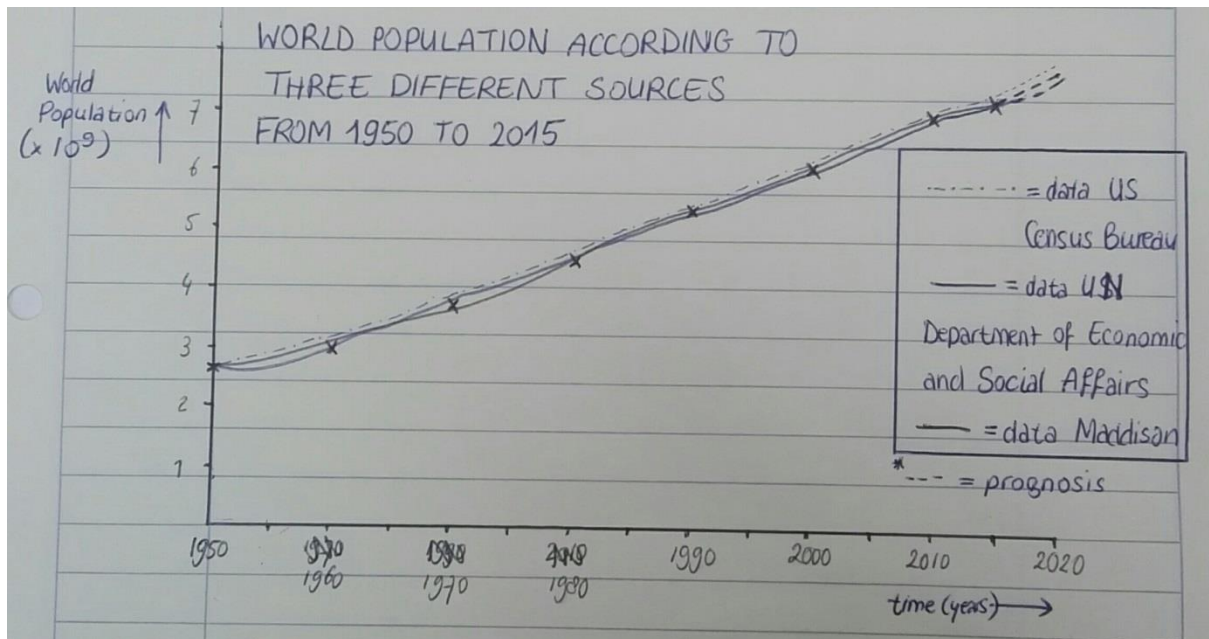 WORLD POPULATION ACCORDING TO
THREE DIFFERENT SOURCES
FROM 1950 TO 2015
World
Population
(x 10⁹)
7
6
5
4
3
2
1
----- = data US
Census Bureau
—— = data UN
Department of Economic
and Social Affairs
—— = data Maddison
* --- = prognosis
1950 1990 2000 2010 2020
1960 1970 1980
time (years)